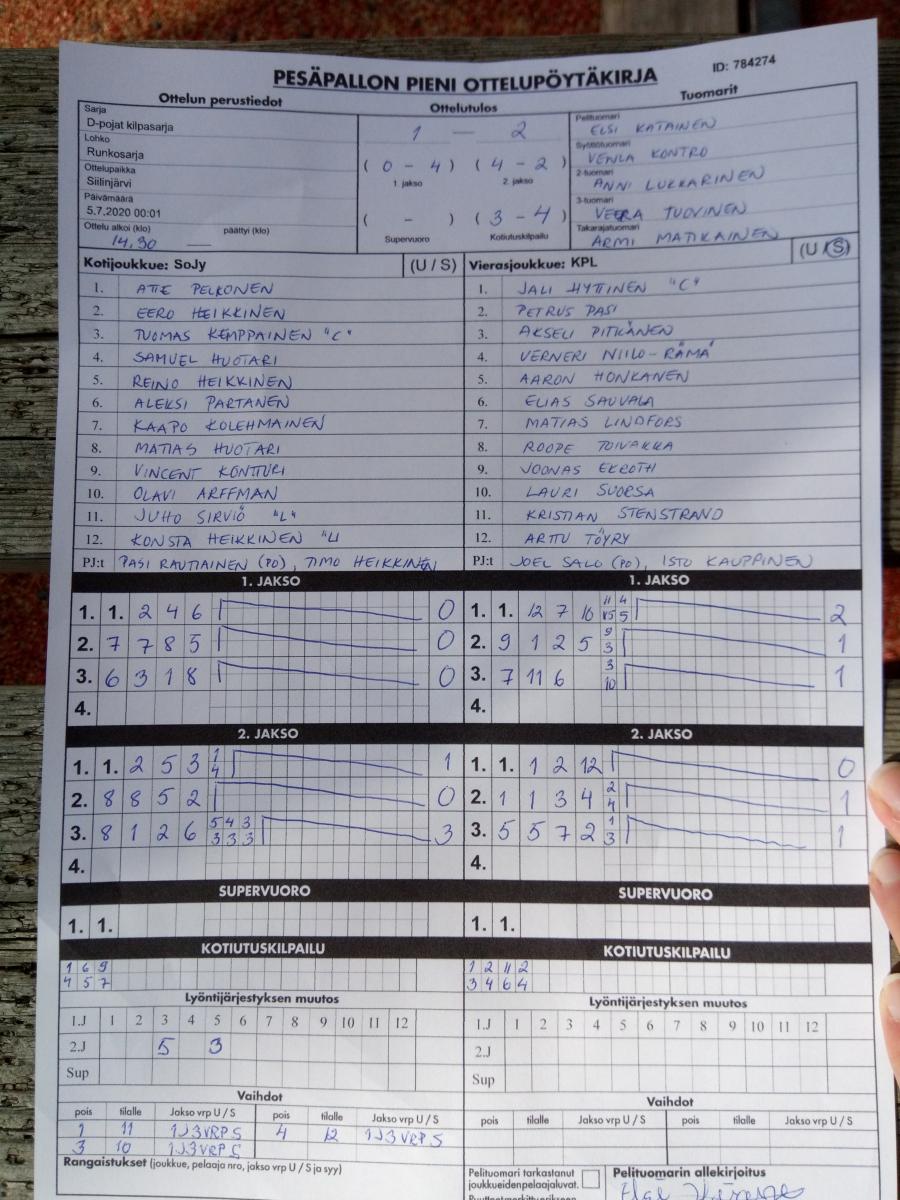 PESÄPALLON PIENI OTTELUPÖYTÄKIRJA
ID: 784274
Ottelun perustiedot
Sarja
D-pojat kilpasarja
Lohko
Runkosarja
Ottelupaikka
Siilinjärvi
Päivämäärä
5.7.2020 00:01
Ottelu alkoi (klo) päättyi (klo)
14.30 —
Ottelutulos
1 — 2
( 0 - 4 ) ( 4 - 2 )
1. jakso 2. jakso
( - ) ( 3 - 4 )
Supervuoro Kotiutuskilpailu
Tuomarit
Pelituomari
ELSI KATAINEN
Syöttötuomari
VENLA KONTRO
2-tuomari
ANNI LUKKARINEN
3-tuomari
VEERA TUOVINEN
Takarajatuomari
ARMI MATIKAINEN
Kotijoukkue: SoJy (U / S)
1. ATTE PELKONEN
2. EERO HEIKKINEN
3. TUOMAS KEMPPAINEN "C"
4. SAMUEL HUOTARI
5. REINO HEIKKINEN
6. ALEKSI PARTANEN
7. KAAPO KOLEHMAINEN
8. MATIAS HUOTARI
9. VINCENT KONTTURI
10. OLAVI ARFFMAN
11. JUHO SIRVIÖ "L"
12. KONSTA HEIKKINEN "L
PJ:t PASI RAUTIAINEN (PO), TIMO HEIKKINEN
Vierasjoukkue: KPL (U / S)
1. JALI HYTTINEN "C"
2. PETRUS PASI
3. AKSELI PITKÄNEN
4. VERNERI NIILO-RÄMÄ
5. AARON HONKANEN
6. ELIAS SAUVALA
7. MATIAS LINDFORS
8. ROOPE TOIVAKKA
9. JOONAS EKROTH
10. LAURI SUORSA
11. KRISTIAN STENSTRAND
12. ARTTU TÖYRY
PJ:t JOEL SALO (PO), ISTO KAUPPINEN
1. JAKSO
1. 1. 2 4 6 0
2. 7 7 8 5 0
3. 6 3 1 8 0
4.
1. JAKSO
1. 1. 12 7 10 11 4 2
5 5
2. 9 1 2 5 9 1
3
3. 7 11 6 3 1
10
4.
2. JAKSO
1. 1. 2 5 3 1 1
4
2. 8 8 5 2 0
3. 8 1 2 6 5 4 3 3
3 3 3
4.
2. JAKSO
1. 1. 1 2 12 0
2. 1 1 3 4 2 1
4
3. 5 5 7 2 1 1
3
4.
SUPERVUORO
1. 1.
SUPERVUORO
1. 1.
KOTIUTUSKILPAILU
1 6 9
4 5 7
KOTIUTUSKILPAILU
1 2 11 2
3 4 6 4
Lyöntijärjestyksen muutos
1.J 1 2 3 4 5 6 7 8 9 10 11 12
2.J 5 3
Sup
Lyöntijärjestyksen muutos
1.J 1 2 3 4 5 6 7 8 9 10 11 12
2.J
Sup
Vaihdot
pois tilalle Jakso vrp U / S pois tilalle Jakso vrp U / S
1 11 1J3VRP S 4 12 1J3VRP S
3 10 1J3VRP S
Vaihdot
pois tilalle Jakso vrp U / S pois tilalle Jakso vrp U / S
Rangaistukset (joukkue, pelaaja nro, jakso vrp U / S ja syy)
Pelituomari tarkastanut
joukkueidenpelaajaluvat.
Pelituomarin allekirjoitus